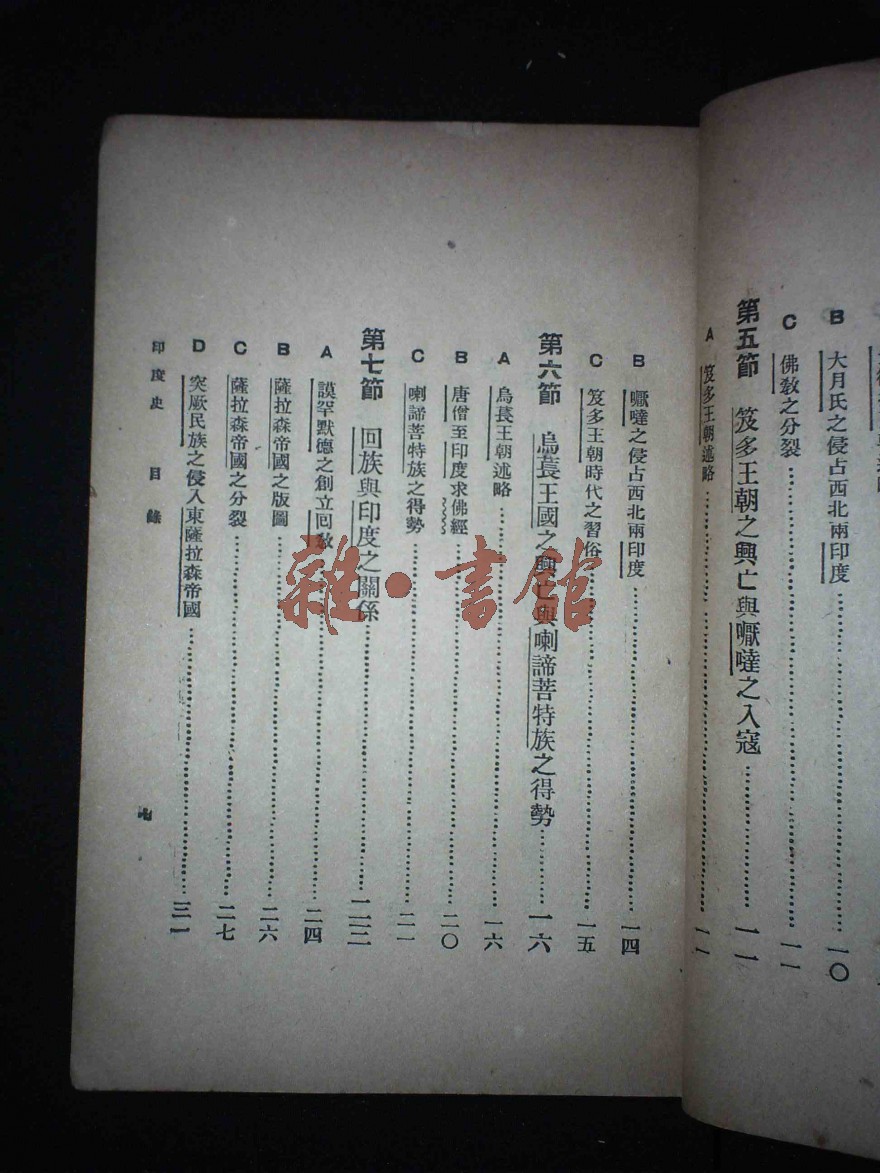 B 大月氏之侵占西北兩印度……一〇
C 佛教之分裂……一一
第五節 笈多王朝之興亡與嚈噠之入寇……一一
A 笈多王朝述略……一一
B 嚈噠之侵占西北兩印度……一四
C 笈多王朝時代之習俗……一五
第六節 烏萇王國之興亡與喇諦菩特族之得勢……一六
A 烏萇王朝述略……一六
B 唐僧至印度求佛經……二〇
C 喇諦菩特族之得勢……二一
第七節 回族與印度之關係……
A 謨罕默德之創立回教……二四
B 薩拉森帝國之版圖……二六
C 薩拉森帝國之分裂……二七
D 突厥民族之侵入東薩拉森帝國……三一
印度史 目錄
七
雜·書館